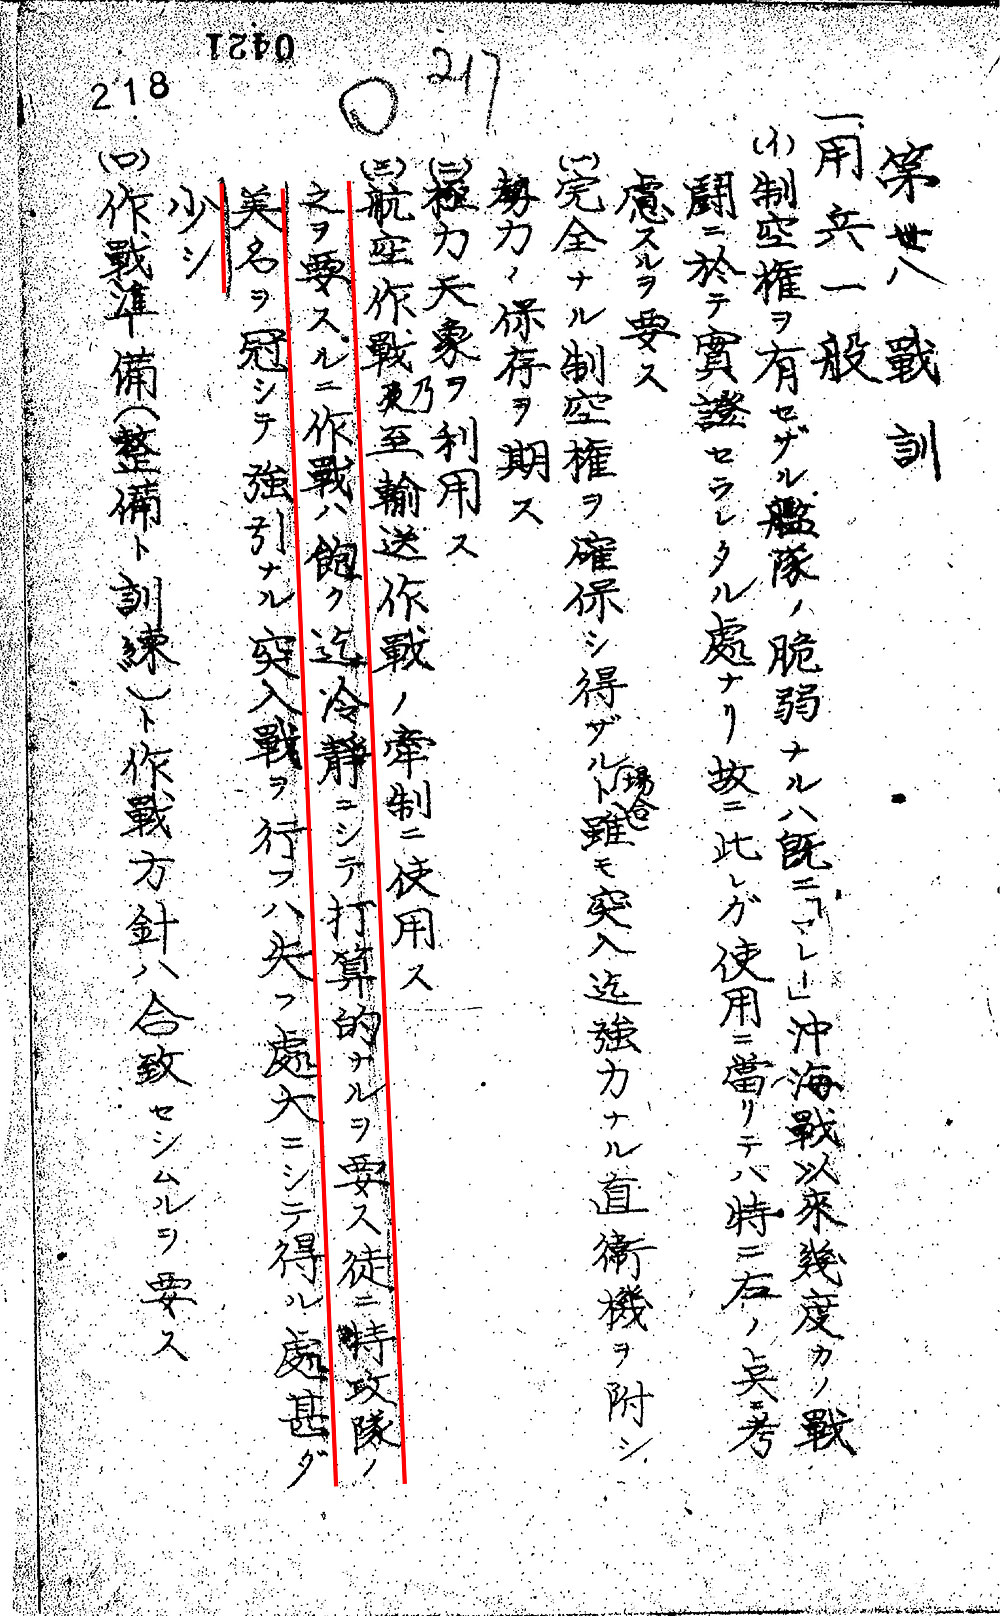 0421
217
218
第卌八 戰訓
一用兵一般
(イ)制空権ヲ有セザル艦隊ノ脆弱ナルハ既ニ「マレー」沖海戰以來幾度カノ戰
闘ニ於テ實證セラレタル處ナリ故ニ此レガ使用ニ當リテハ特ニ左ノ点ニ考
慮スルヲ要ス
(一)完全ナル制空権ヲ確保シ得ザル場合ト雖モ突入迄強力ナル直衛機ヲ附シ
勢力ノ保存ヲ期ス
(二)極力天象ヲ利用ス
(三)航空作戰乃至輸送作戰ノ牽制ニ使用ス
之ヲ要スルニ作戰ハ飽ク迄冷靜ニシテ打算的ナルヲ要ス徒ニ特攻隊ノ
美名ヲ冠シテ強引ナル突入戰ヲ行フハ失フ處大ニシテ得ル處甚ダ
少シ
(ロ)作戰準備(整備ト訓練)ト作戰方針ハ合致セシムルヲ要ス